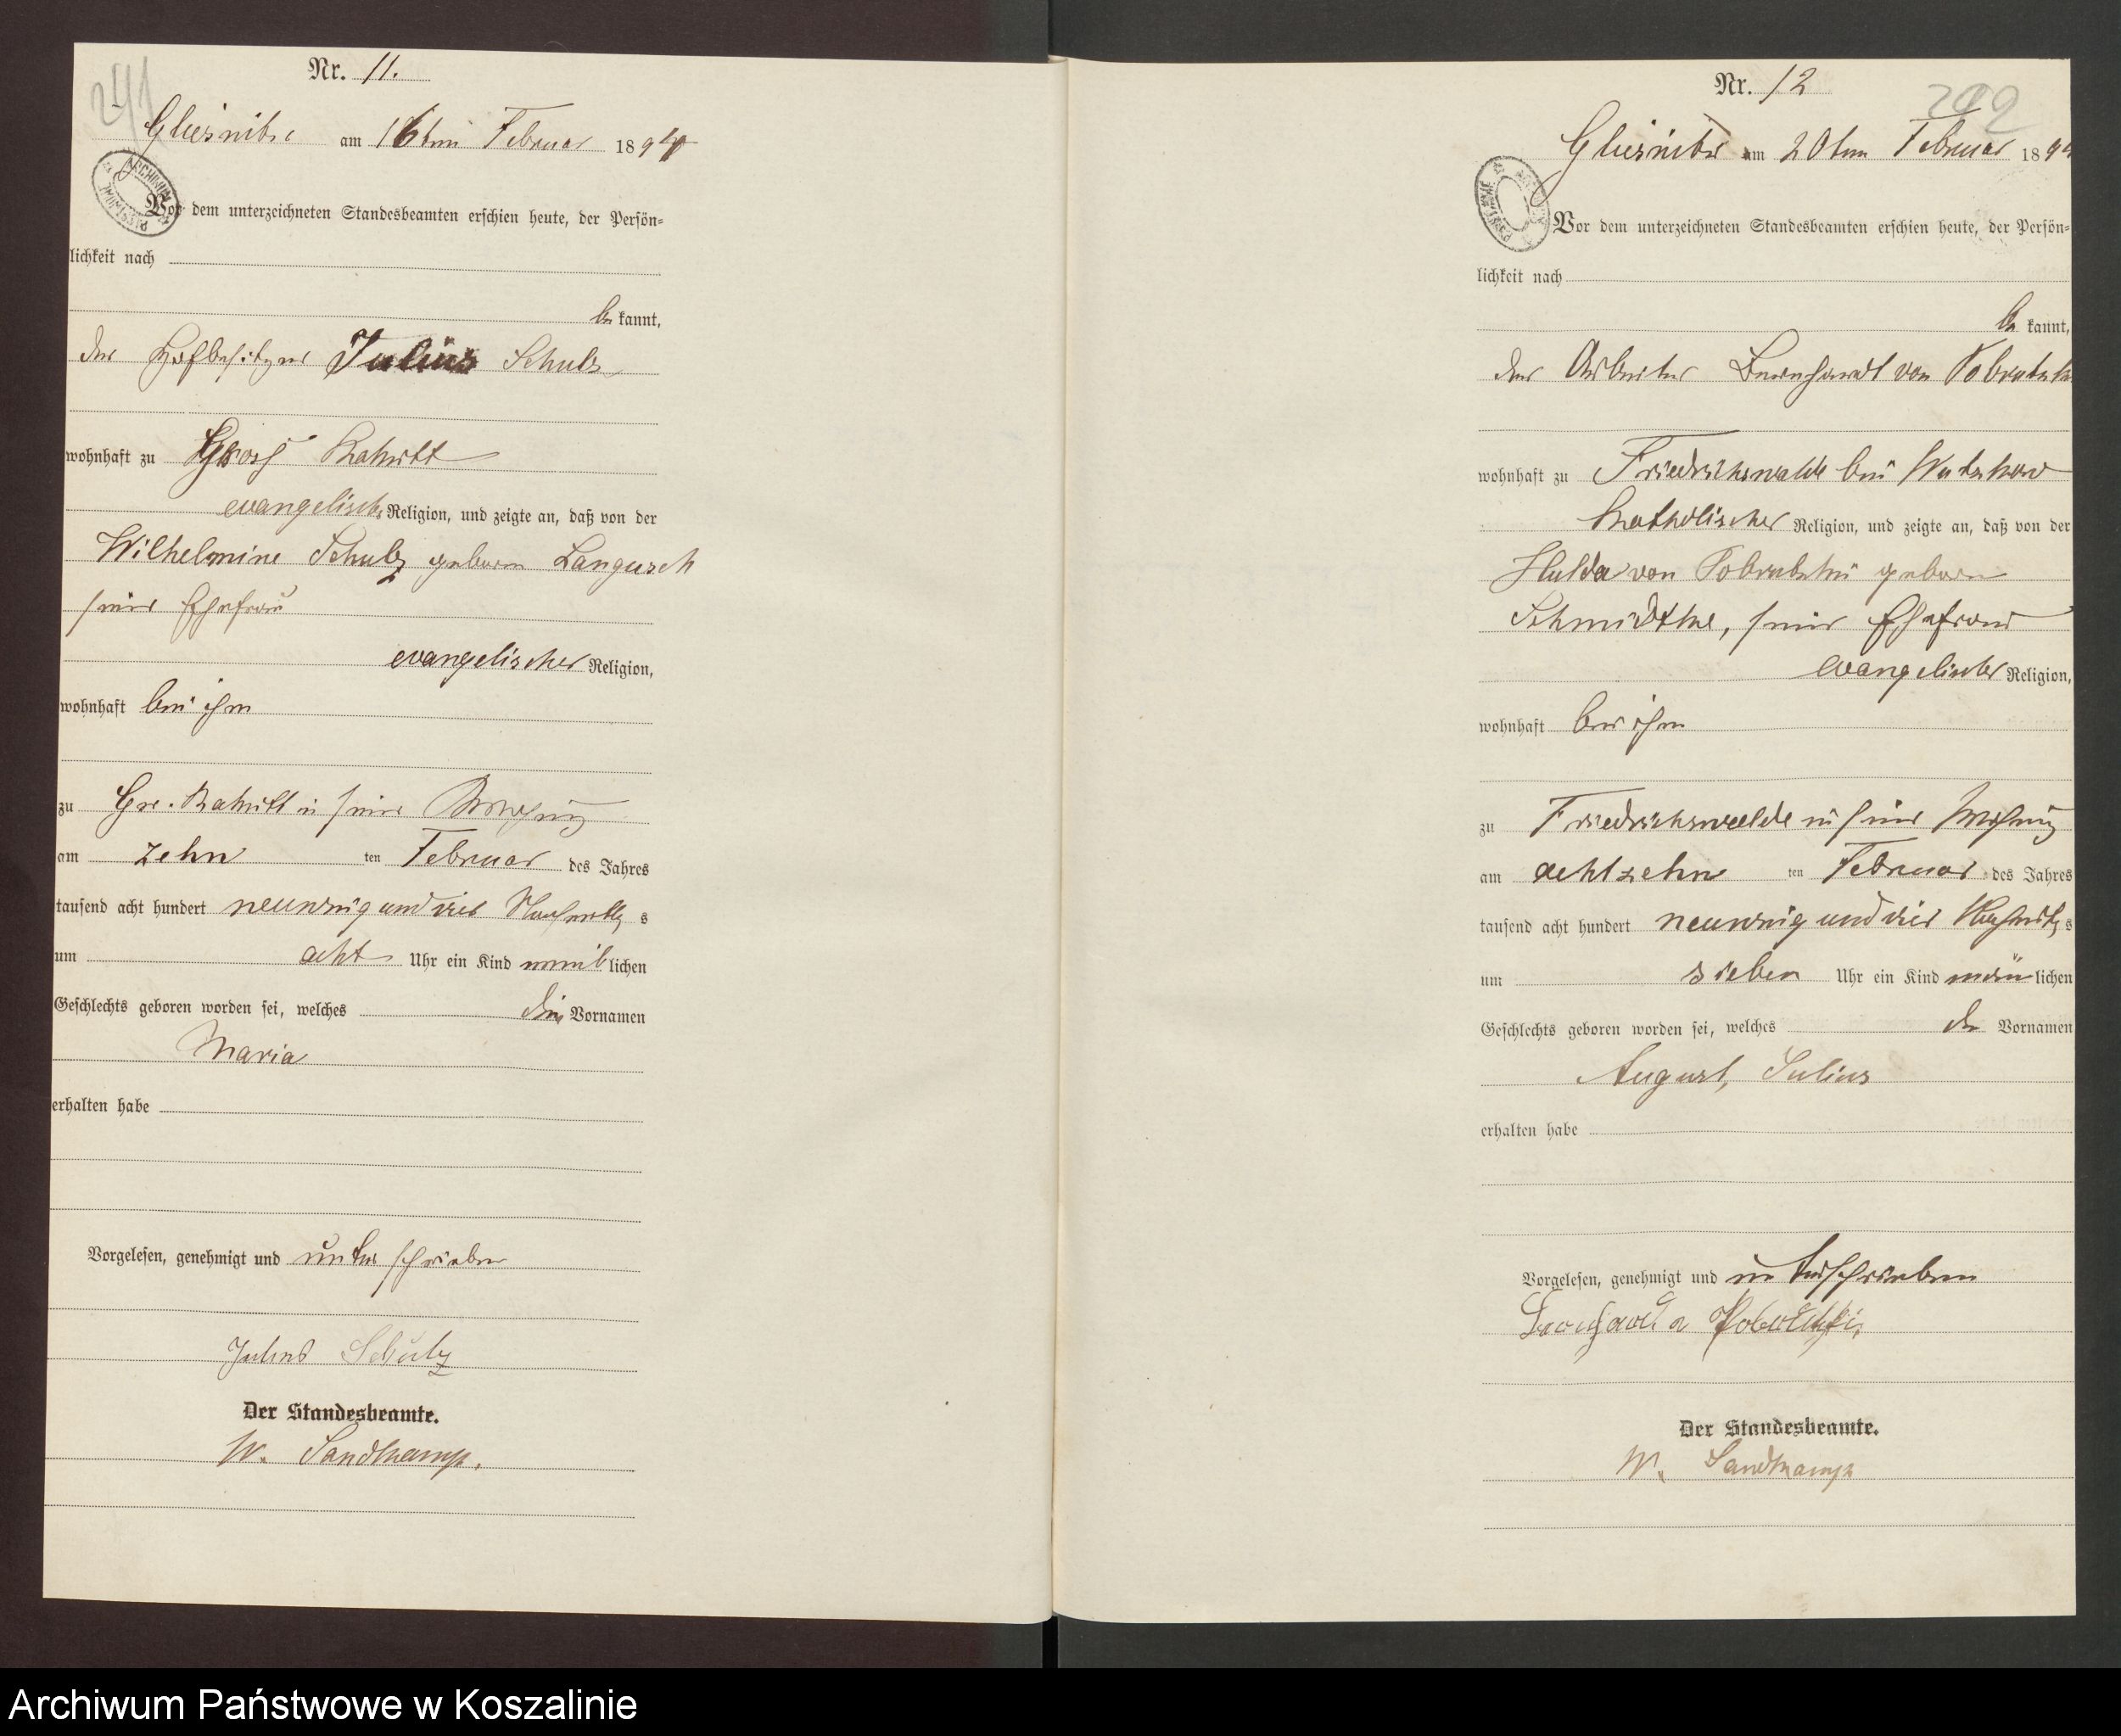 241
Nr. 11.
Gliesnitz am 16ten Februar 1894
Vor dem unterzeichneten Standesbeamten erschien heute, der Persön=
lichkeit nach
be kannt,
der Hofbesitzer Julius Schulz
wohnhaft zu Gross Rakitt
evangelischer Religion, und zeigte an, daß von der
Wilhelmine Schulz geboren Langusch
seiner Ehefrau
evangelischer Religion,
wohnhaft bei ihm
zu Gr. Rakitt in seiner Wohnung
am zehn ten Februar des Jahres
tausend acht hundert neunzig und vier Nachmittags
um acht Uhr ein Kind weiblichen
Geschlechts geboren worden sei, welches die Vornamen
Maria
erhalten habe
Vorgelesen, genehmigt und unterschrieben
Julius Schulz
Der Standesbeamte.
W. Sandkamp.
Nr. 12
Gliesnitz am 20ten Februar 1894
Vor dem unterzeichneten Standesbeamten erschien heute, der Persön=
lichkeit nach
be kannt,
der Arbeiter Bernhardt von Pobratzki
wohnhaft zu Friedrichswalde bei Wutzkow
katholischer Religion, und zeigte an, daß von der
Hulda von Pobratzki geboren
Schmidtke, seiner Ehefrau
evangelischer Religion,
wohnhaft bei ihm
zu Friedrichswalde in seiner Wohnung
am achtzehn ten Februar des Jahres
tausend acht hundert neunzig und vier Nachmittags
um sieben Uhr ein Kind mänlichen
Geschlechts geboren worden sei, welches die Vornamen
August, Julius
erhalten habe
Vorgelesen, genehmigt und unterschrieben
Der Standesbeamte.
W. Sandkamp
Archiwum Państwowe w Koszalinie